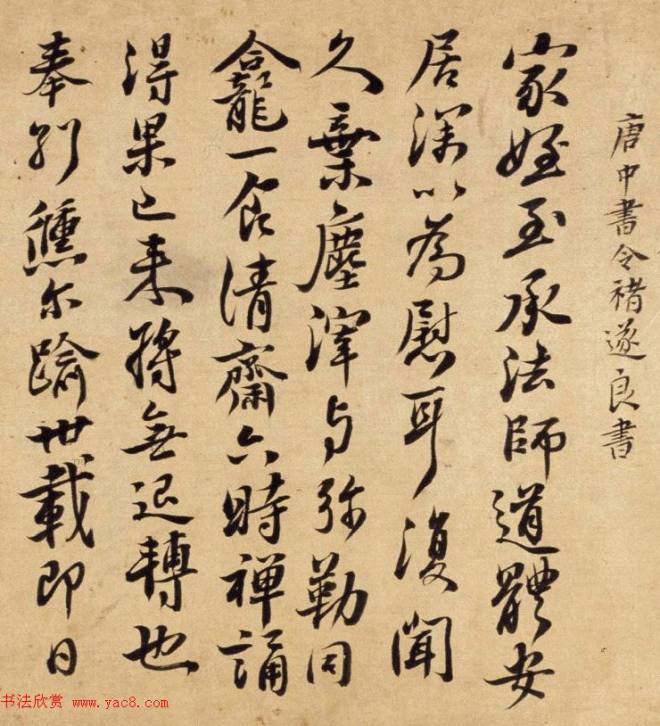 唐中書令褚遂良書
家姪至承法師道體安
居深以為慰耳復聞
久棄塵滓与弥勒同
龕一食清齋六時禪誦
得果已來將無退轉也
奉別倐尓踰卅載即日
书法欣赏 www.yac8.com